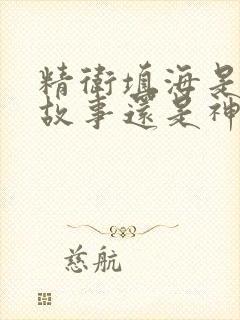 精衛填海是
故事還是神
慈航